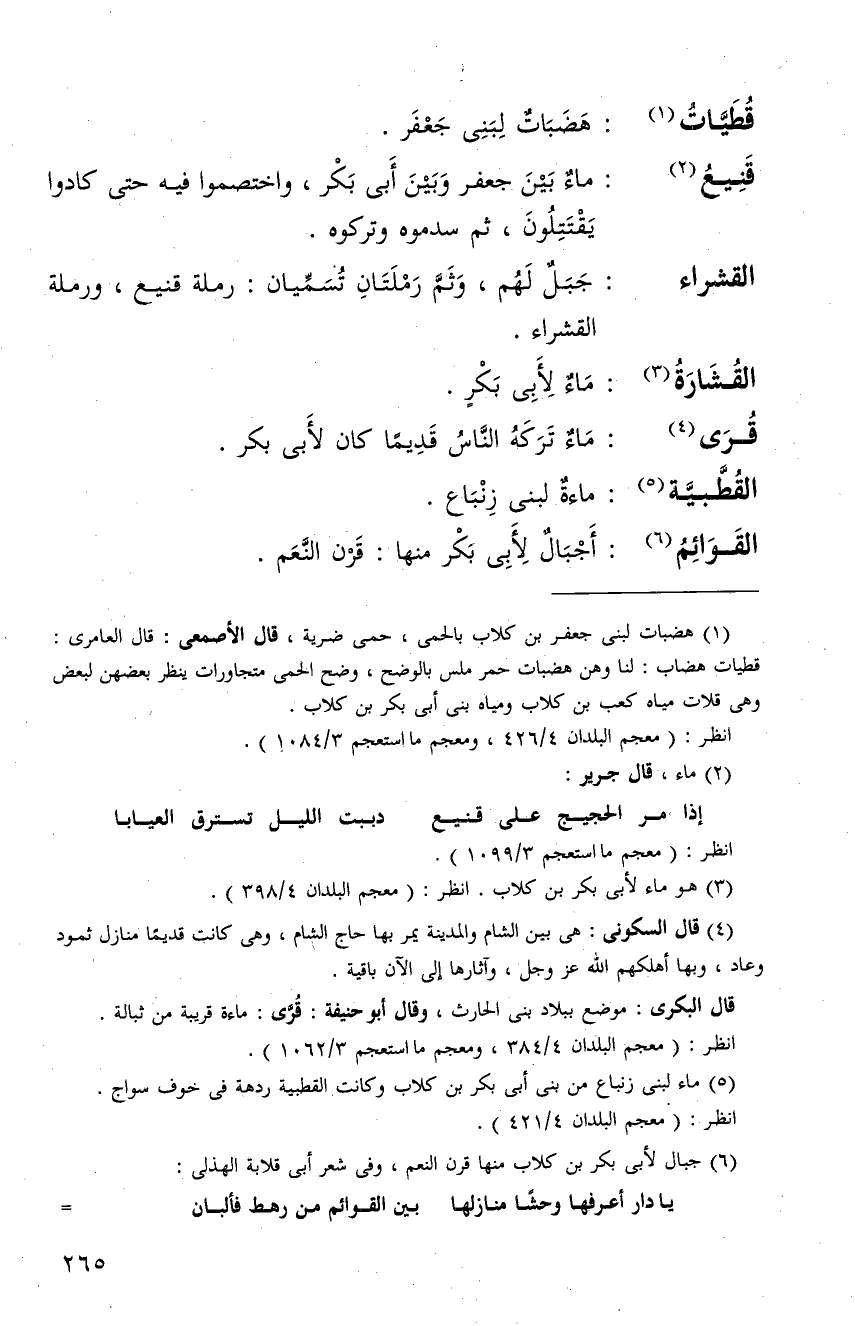 قُطَيَّاتُ (١) : هَضَبَاتٌ لِبَنِى جَعْفَر .
قَنِيعُ (٢) : ماءٌ بَيْنَ جعفر وَبَيْنَ أَبى بَكْر ، واختصموا فيه حتى كادوا
يَقْتَتِلُونَ ، ثم سدموه وتركوه .
القشراء : جَبَلٌ لَهُم ، وَثَمَّ رَمْلَتَانِ تُسَمِّيان : رملة قنيع ، ورملة
القشراء .
القُشَارَةُ (٣) : مَاءٌ لِأَبِى بَكْرٍ .
قُرَى (٤) : مَاءٌ تَرَكَهُ النَّاسُ قَدِيمًا كان لأَبى بكر .
القُطَّبِيَّة (٥) : ماءةٌ لبنى زِنْبَاع .
القَوَائِمُ (٦) : أَجْبَالٌ لِأَبِى بَكْر منها : قَرْن النَّعَم .
(١) هضبات لبنى جعفر بن كلاب بالحمى ، حمى ضرية ، قال الأصمعى : قال العامرى :
قطيات هضاب : لنا وهن هضبات حمر ملس بالوضح ، وضح الحمى متجاورات ينظر بعضهن لبعض
وهى قلات مياه كعب بن كلاب ومياه بنى أبى بكر بن كلاب .
انظر : ( معجم البلدان ٤٢٦/٤ ، ومعجم ما استعجم ١٠٨٤/٣ ) .
(٢) ماء ، قال جرير :
إذا مر الحجيج على قنيع دببت الليل تسترق العيابا
انظر : ( معجم ما استعجم ١٠٩٩/٣ ) .
(٣) هو ماء لأبى بكر بن كلاب . انظر : ( معجم البلدان ٣٩٨/٤ ) .
(٤) قال السكونى : هى بين الشام والمدينة يمر بها حاج الشام ، وهى كانت قديمًا منازل ثمود
وعاد ، وبها أهلكهم الله عز وجل ، وآثارها إلى الآن باقية .
قال البكرى : موضع ببلاد بنى الحارث ، وقال أبو حنيفة : قُرَّى : ماءة قريبة من ثبالة .
انظر : ( معجم البلدان ٣٨٤/٤ ، ومعجم ما استعجم ١٠٦٢/٣ ) .
(٥) ماء لبنى زنباع من بنى أبى بكر بن كلاب وكانت القطبية ردهة فى خوف سواج .
انظر : ( معجم البلدان ٤٢١/٤ ) .
(٦) جبال لأبى بكر بن كلاب منها قرن النعم ، وفى شعر أبى قلابة الهذلى :
يا دار أعرفها وحشًا منازلها بين القوائم من رهط فألبان =
٢٦٥